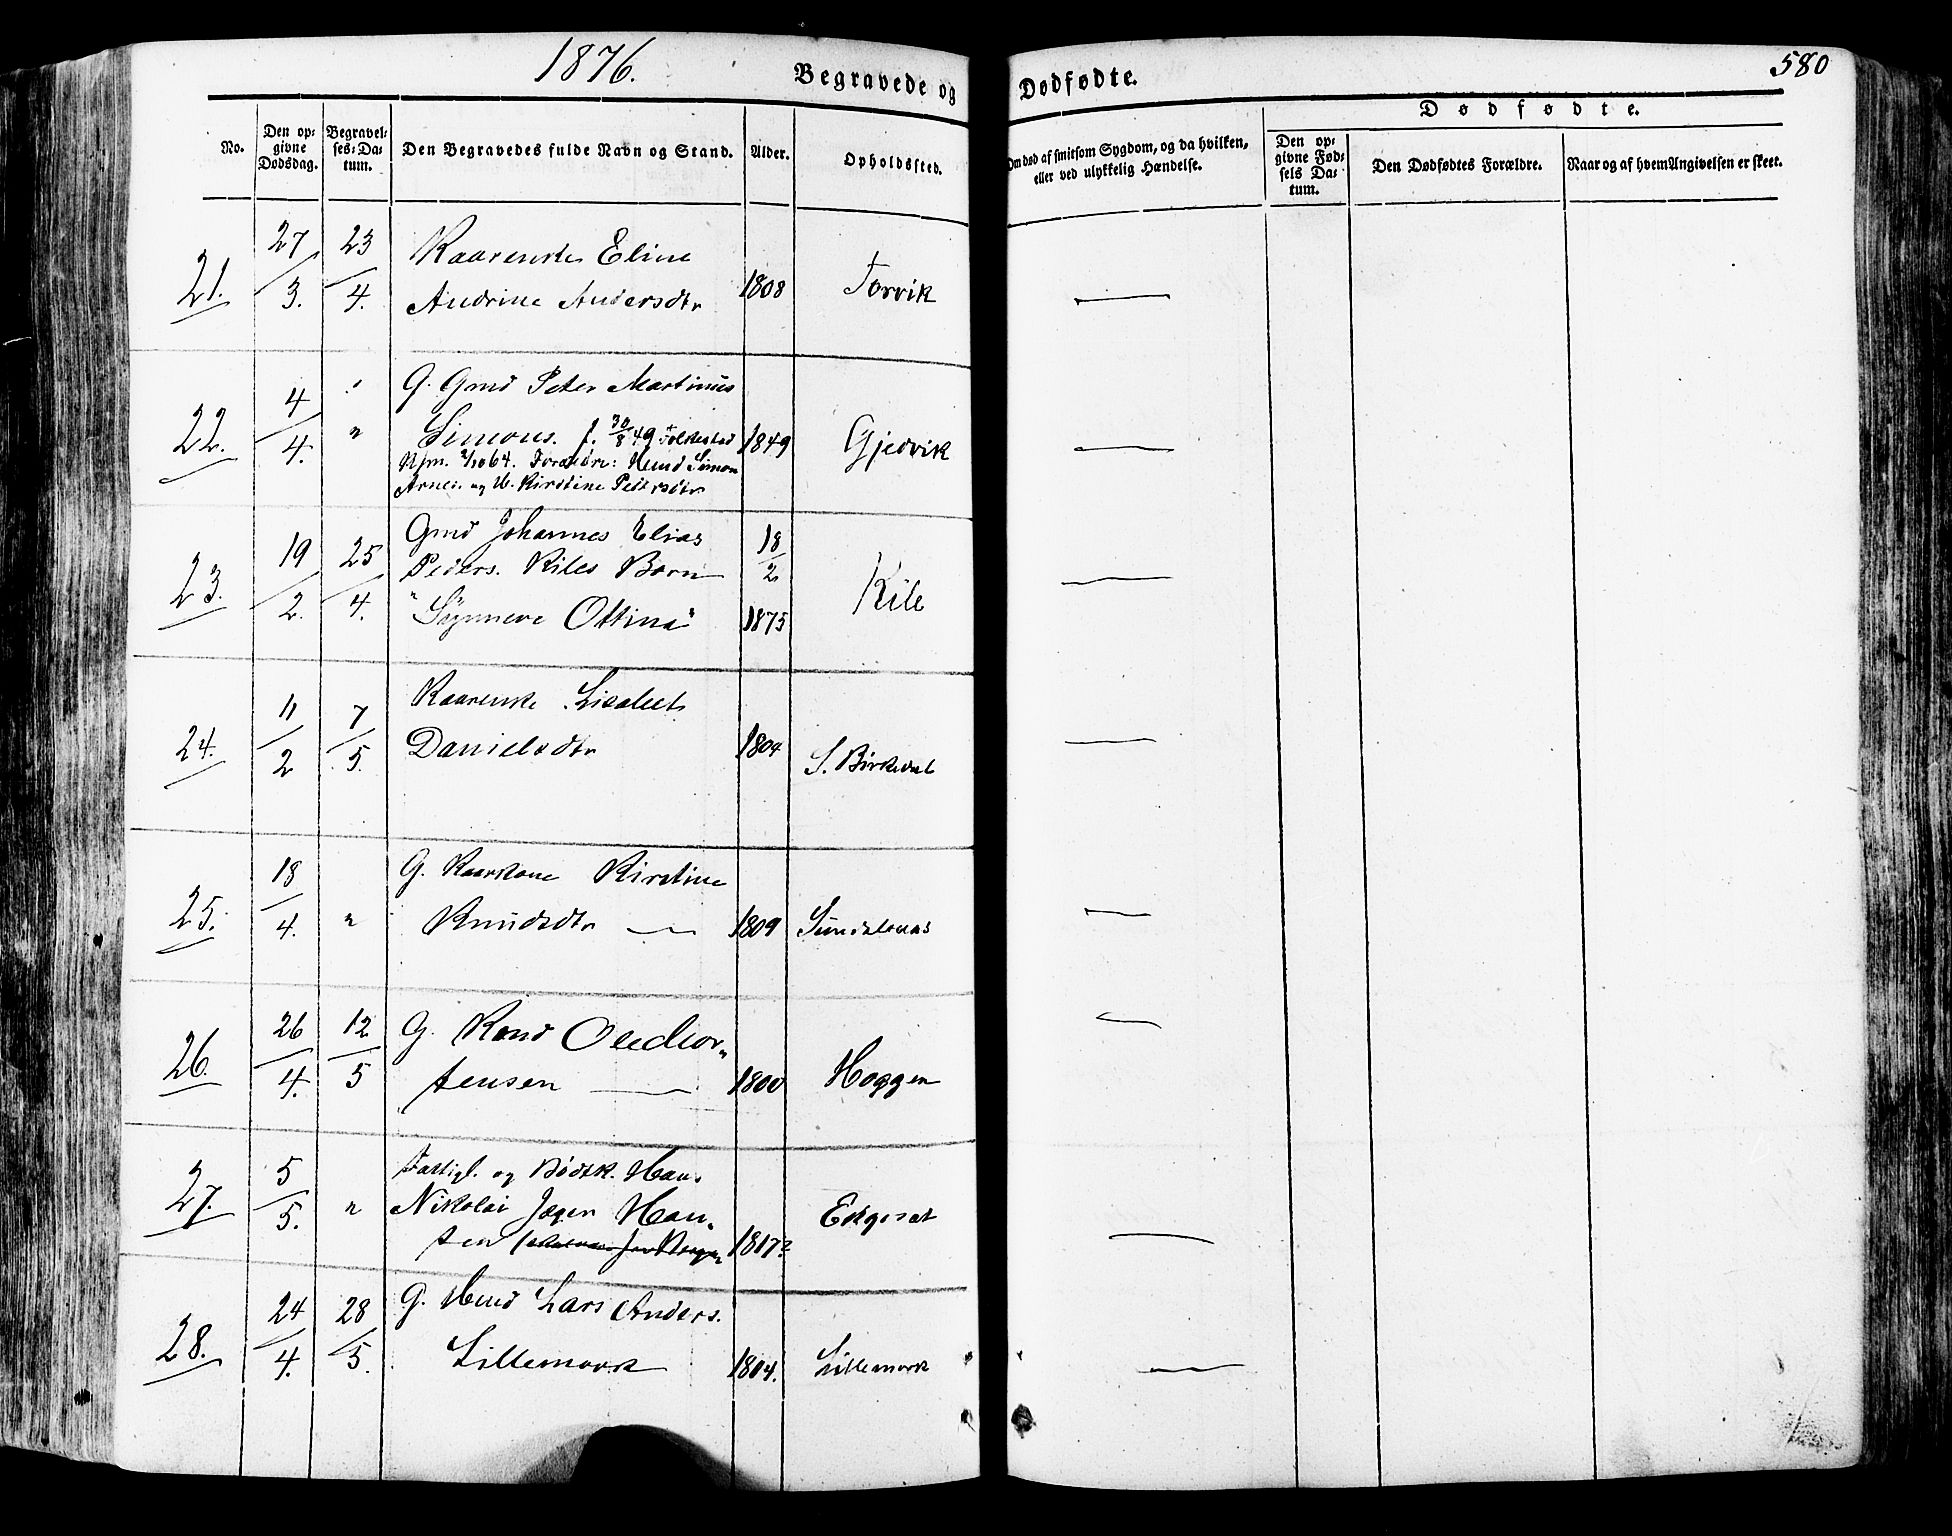 1876.
Begravede og Dødfødte.
580
No.
Den opgivne Dødsdag.
Begravelses-Datum.
Den Begravedes fulde Navn og Stand.
Alder.
Opholdssted.
Om død af smitsom Sygdom, og da hvilken,
eller ved ulykkelig Hændelse.
Dødfødte.
Den opgivne Fødsels Datum.
Den Dødfødtes Forældre.
Naar og af hvem Angivelsen er skeet.
21. 27/3. 23/4. Kaarenke Eline
Andrine Andersdtr 1808 Torvik
22. 4/4. " G. Gmd Peter Martinus
Simons. f. 30/8 49 Folkestad 1849 Gjedvik
Forældre: Hmd Simon
Arnes. og H. Kirstine Pedersdtr
23. 19/2. 25/4. Gmd Johannes Elias 18/2
Peders. Kiles Barn Kile
"Synneve Ottine" 1875
24. 11/2 7/5. Kaarenke Lisabet
Danielsdtr 1804 S. Birkedal
25. 18/4. " G. Kaarkone Kirstine
Knudsdtr — 1809
26. 26/4. 12/5 G. Kand
tensen — 1800 Hoggen
27. 5/5. " Fattigl. og Bødk. Hans
Nikolai Jæger Han-
sen 1817? Ekgeset
28. 24/4. 28/5. G. Hmd Lars Anders.
Lillemork 1804. Lillemork